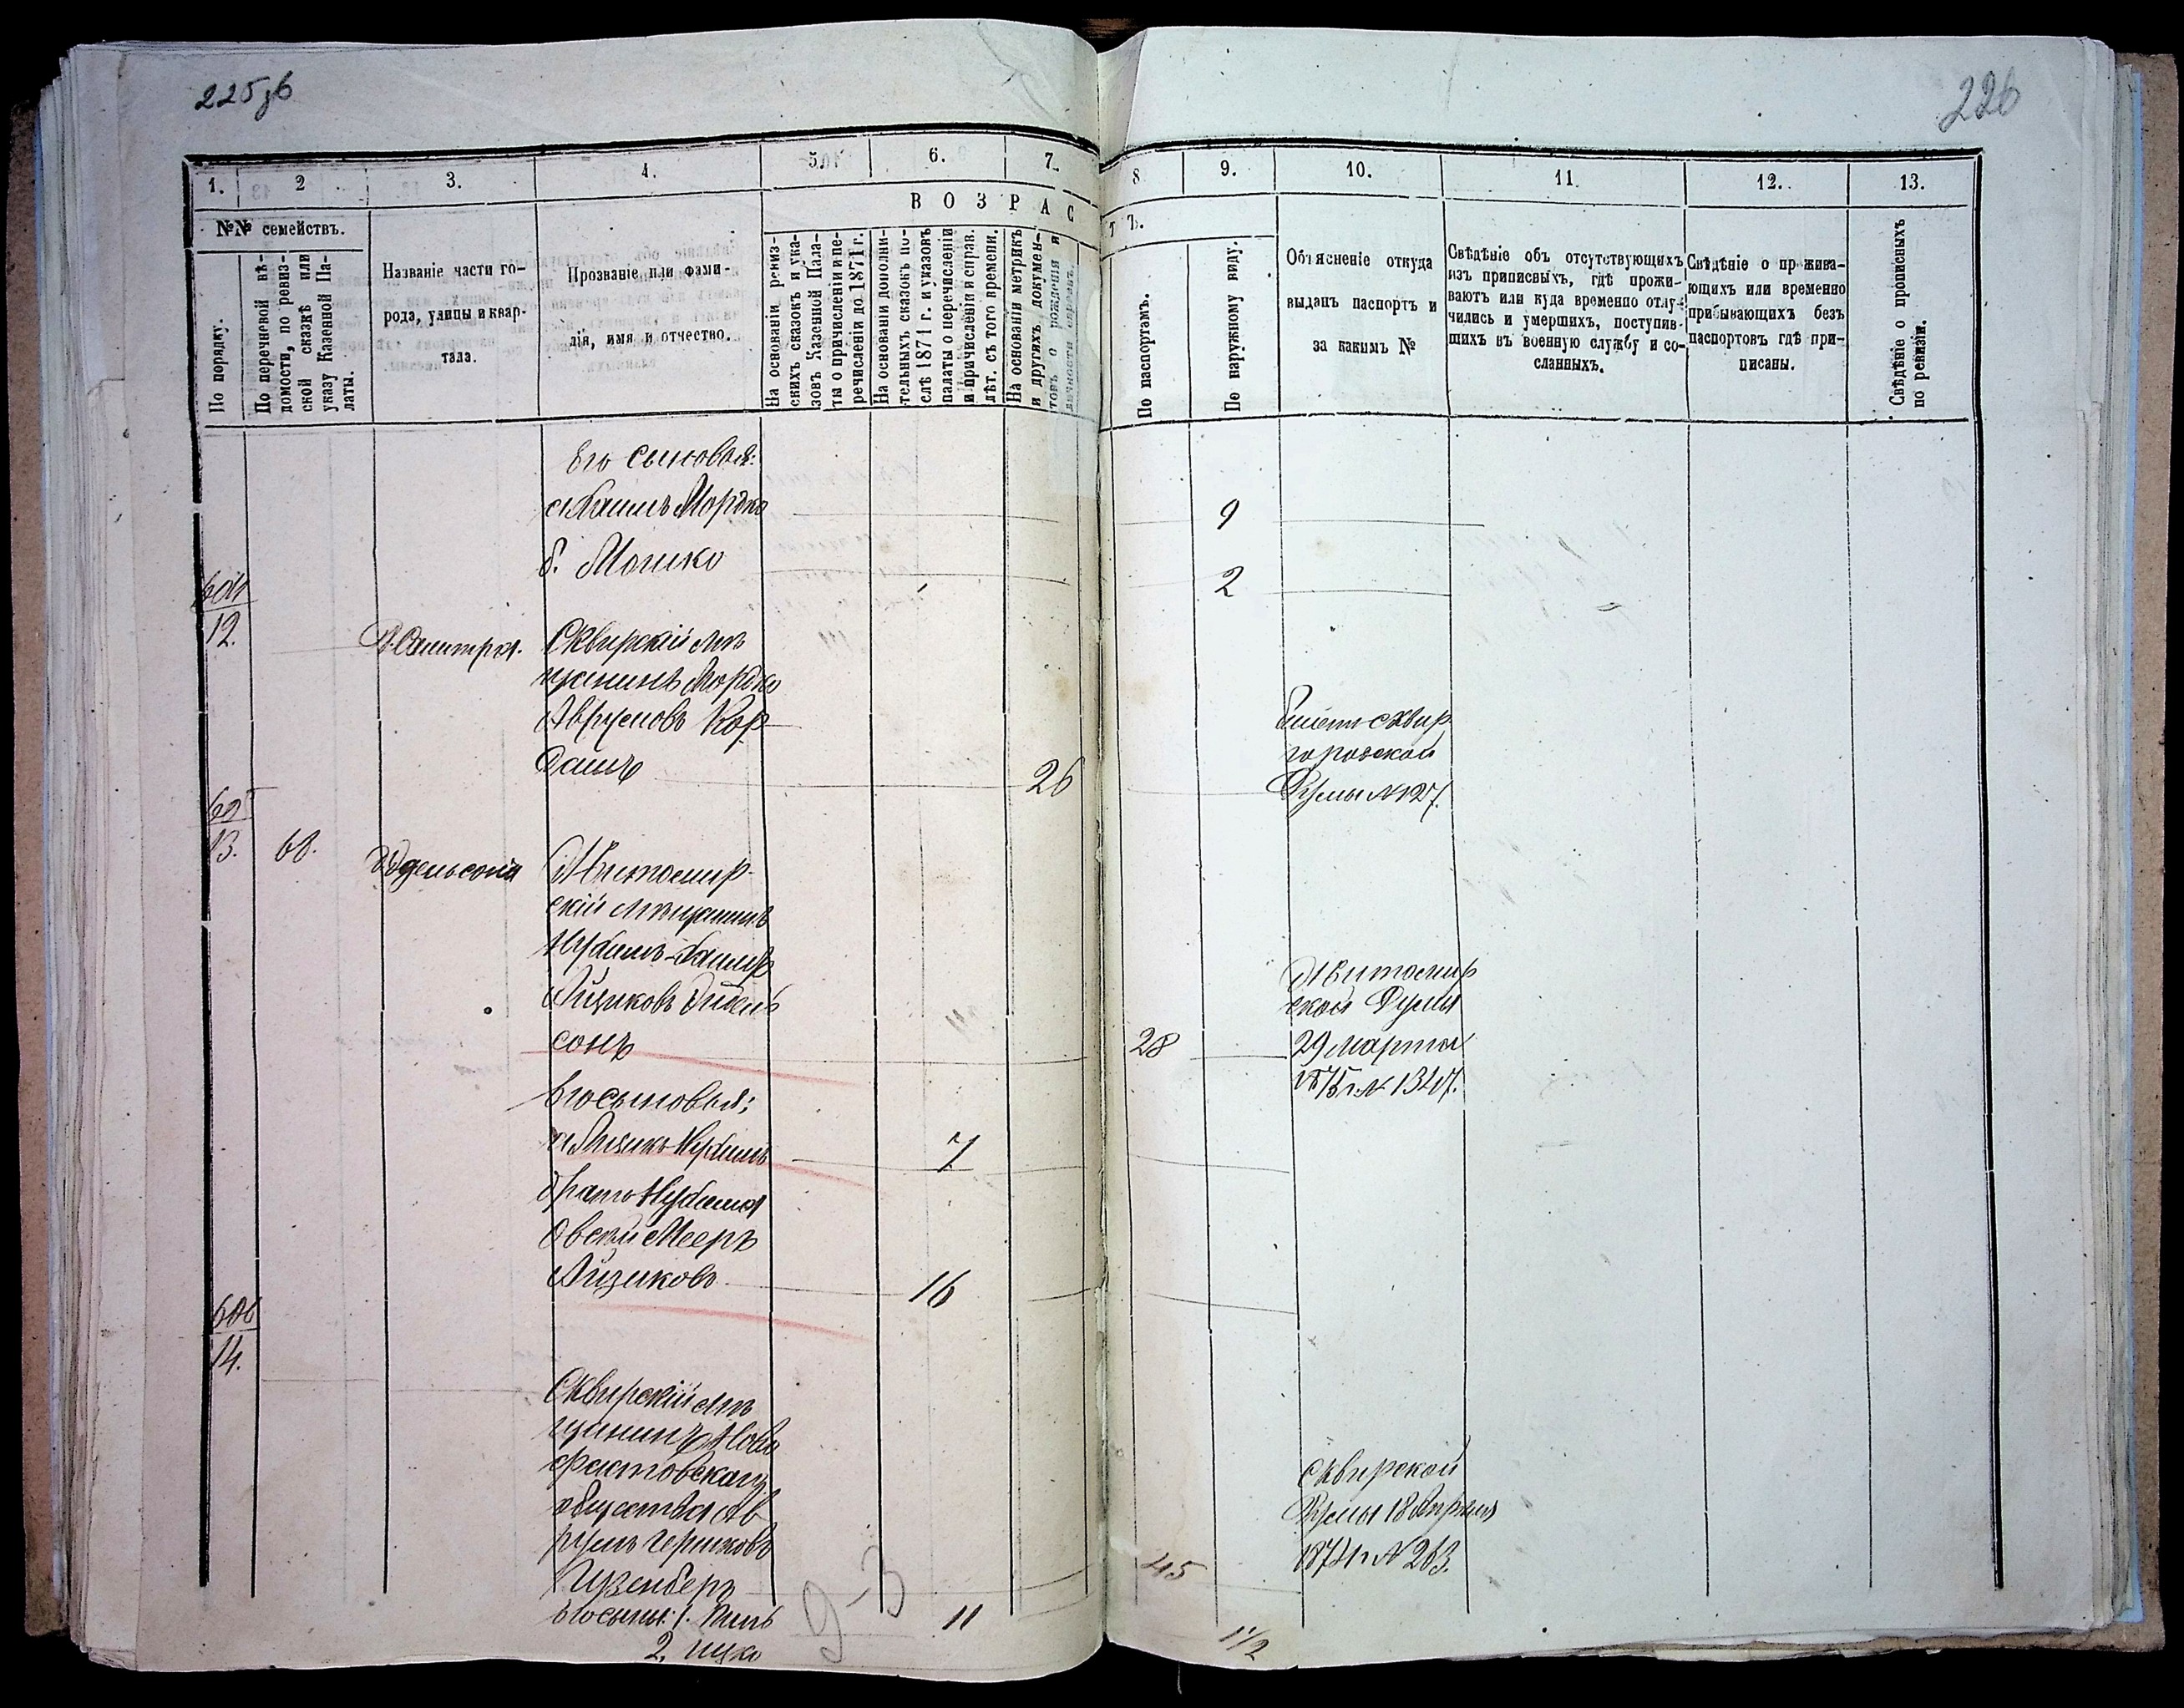 225зв
226
1.
2
3.
4.
5.
6.
7.
8.
9.
10.
11.
12.
13.
№№ семействъ.
По порядку.
По перечневой вѣ-
домости, по ревиз-
ской сказкѣ или
указу Казенной Па-
латы.
Названіе части го-
рода, улицы и квар-
тала.
Прозваніе или фами-
лія, имя и отчество.
ВОЗРАС
ТЪ.
На основаніи ревиз-
скихъ сказокъ и ука-
зовъ Казенной Пала-
ты о причисленіи и пе-
речисленіи до 1871 г.
На основаніи дополни-
тельныхъ сказокъ по-
слѣ 1871 г. и указовъ
палаты о перечисленіи
и причисленіи и справ.
лѣт. съ того времени.
На основаніи метрикъ
и другихъ докумен-
товъ о рожденіи и
По паспортамъ.
По наружному виду.
Объясненіе откуда
выданъ паспортъ и
за какимъ №
Свѣдѣніе объ отсутствующихъ
изъ приписныхъ, гдѣ прожи-
ваютъ или куда временно отлу-
чились и умершихъ, поступив-
шихъ въ военную службу и со-
сланныхъ.
Свѣдѣніе о прожива-
ющихъ или временно
прибывающихъ безъ
паспортовъ гдѣ при-
писаны.
Свѣдѣніе о прописныхъ
по ревизіи.
Его сыновья:
Мордко
9
б. Мошко
2
604
12.
Сквирскій мѣ
щанинъ Мордко
Аврумовъ Кор
данъ
26
сквир
городской
Думы №127.
605
13.
68.
Эдельсона
Житомир-
скій мѣщанинъ
Нухимъ-
Айзиковъ Эдель
сонъ
28
Житомир
ской Думы
29 Марта
1875 г. №
Его сыновья:
7
братъ Нухима
Овсей Мееръ
Айзиковъ
16
606
14.
Сквирскій мѣ
щанинъ Ново
фастовскаго
общества Ав
румъ Гершковъ
45
Сквирской
Думы 18 Апреля
1874 г. № 263.
Его сыны: 1.
11
2. Ицко
1 1/2